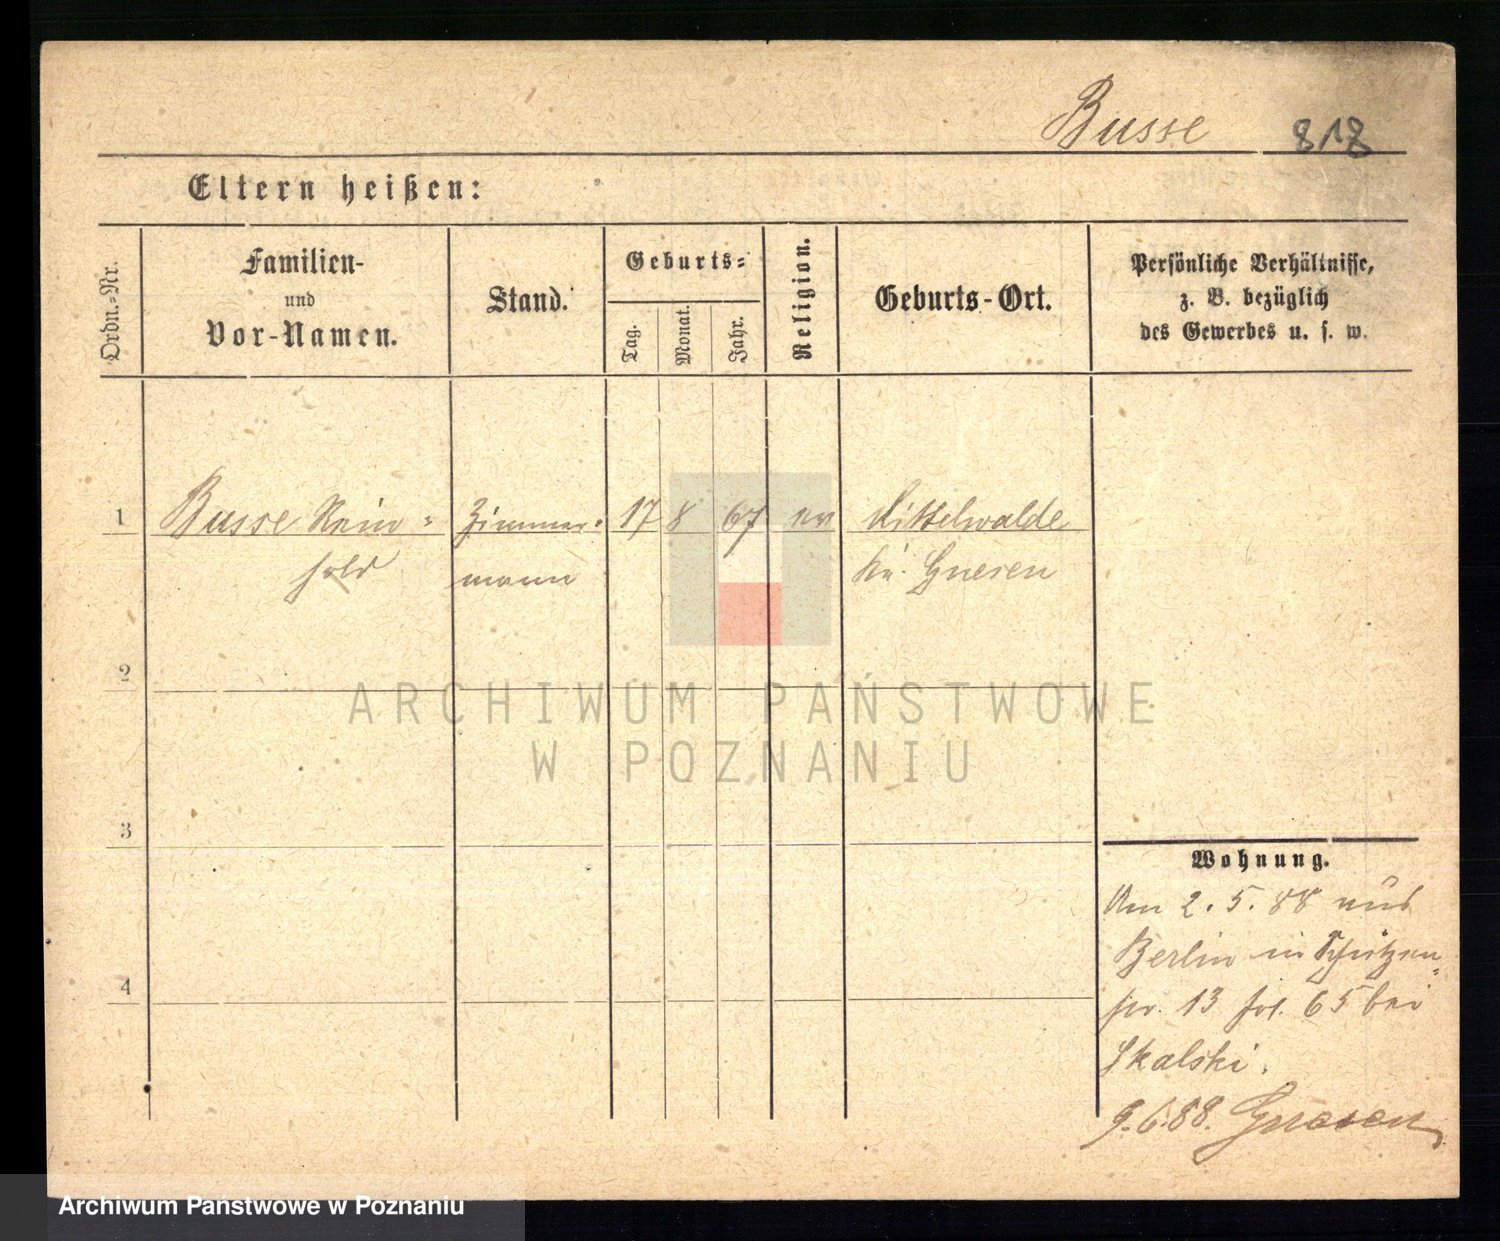 Busse 818
Eltern heißen:
Ordn.=Nr.
Familien-
und
Vor-Namen.
Stand.
Geburts=
Tag.
Monat.
Jahr.
Religion.
Geburts-Ort.
Persönliche Verhältnisse,
z. B. bezüglich
des Gewerbes u. s. w.
1 Busse Rein= Zimmer= 17 8 67 ev Mittelwalde
hold mann Kr. Gnesen
2
3
4
Wohnung.
Am 2. 5. 88 aus
Berlin in Schützen
13 65 bei
Skalski.
9.6.88. Gnesen
ARCHIWUM PAŃSTWOWE
W POZNANIU
Archiwum Państwowe w Poznaniu